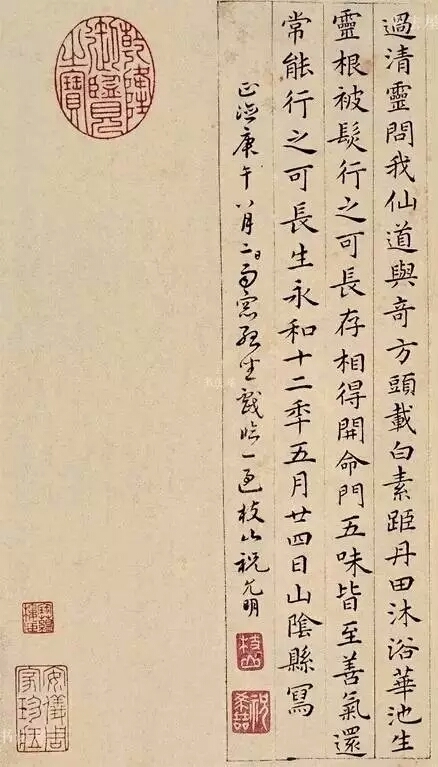 過清靈問我仙道與竒方頭載白素距丹田沐浴華池生
靈根被髮行之可長存相得開命門五味皆至善氣還
常能行之可長生永和十二秊五月廿四日山陰縣寫
正德庚午八月二日雨窓坐戲臨一過枝山祝允明
枝山
祝希哲
乾隆御覽之寶
安儀周家珍藏